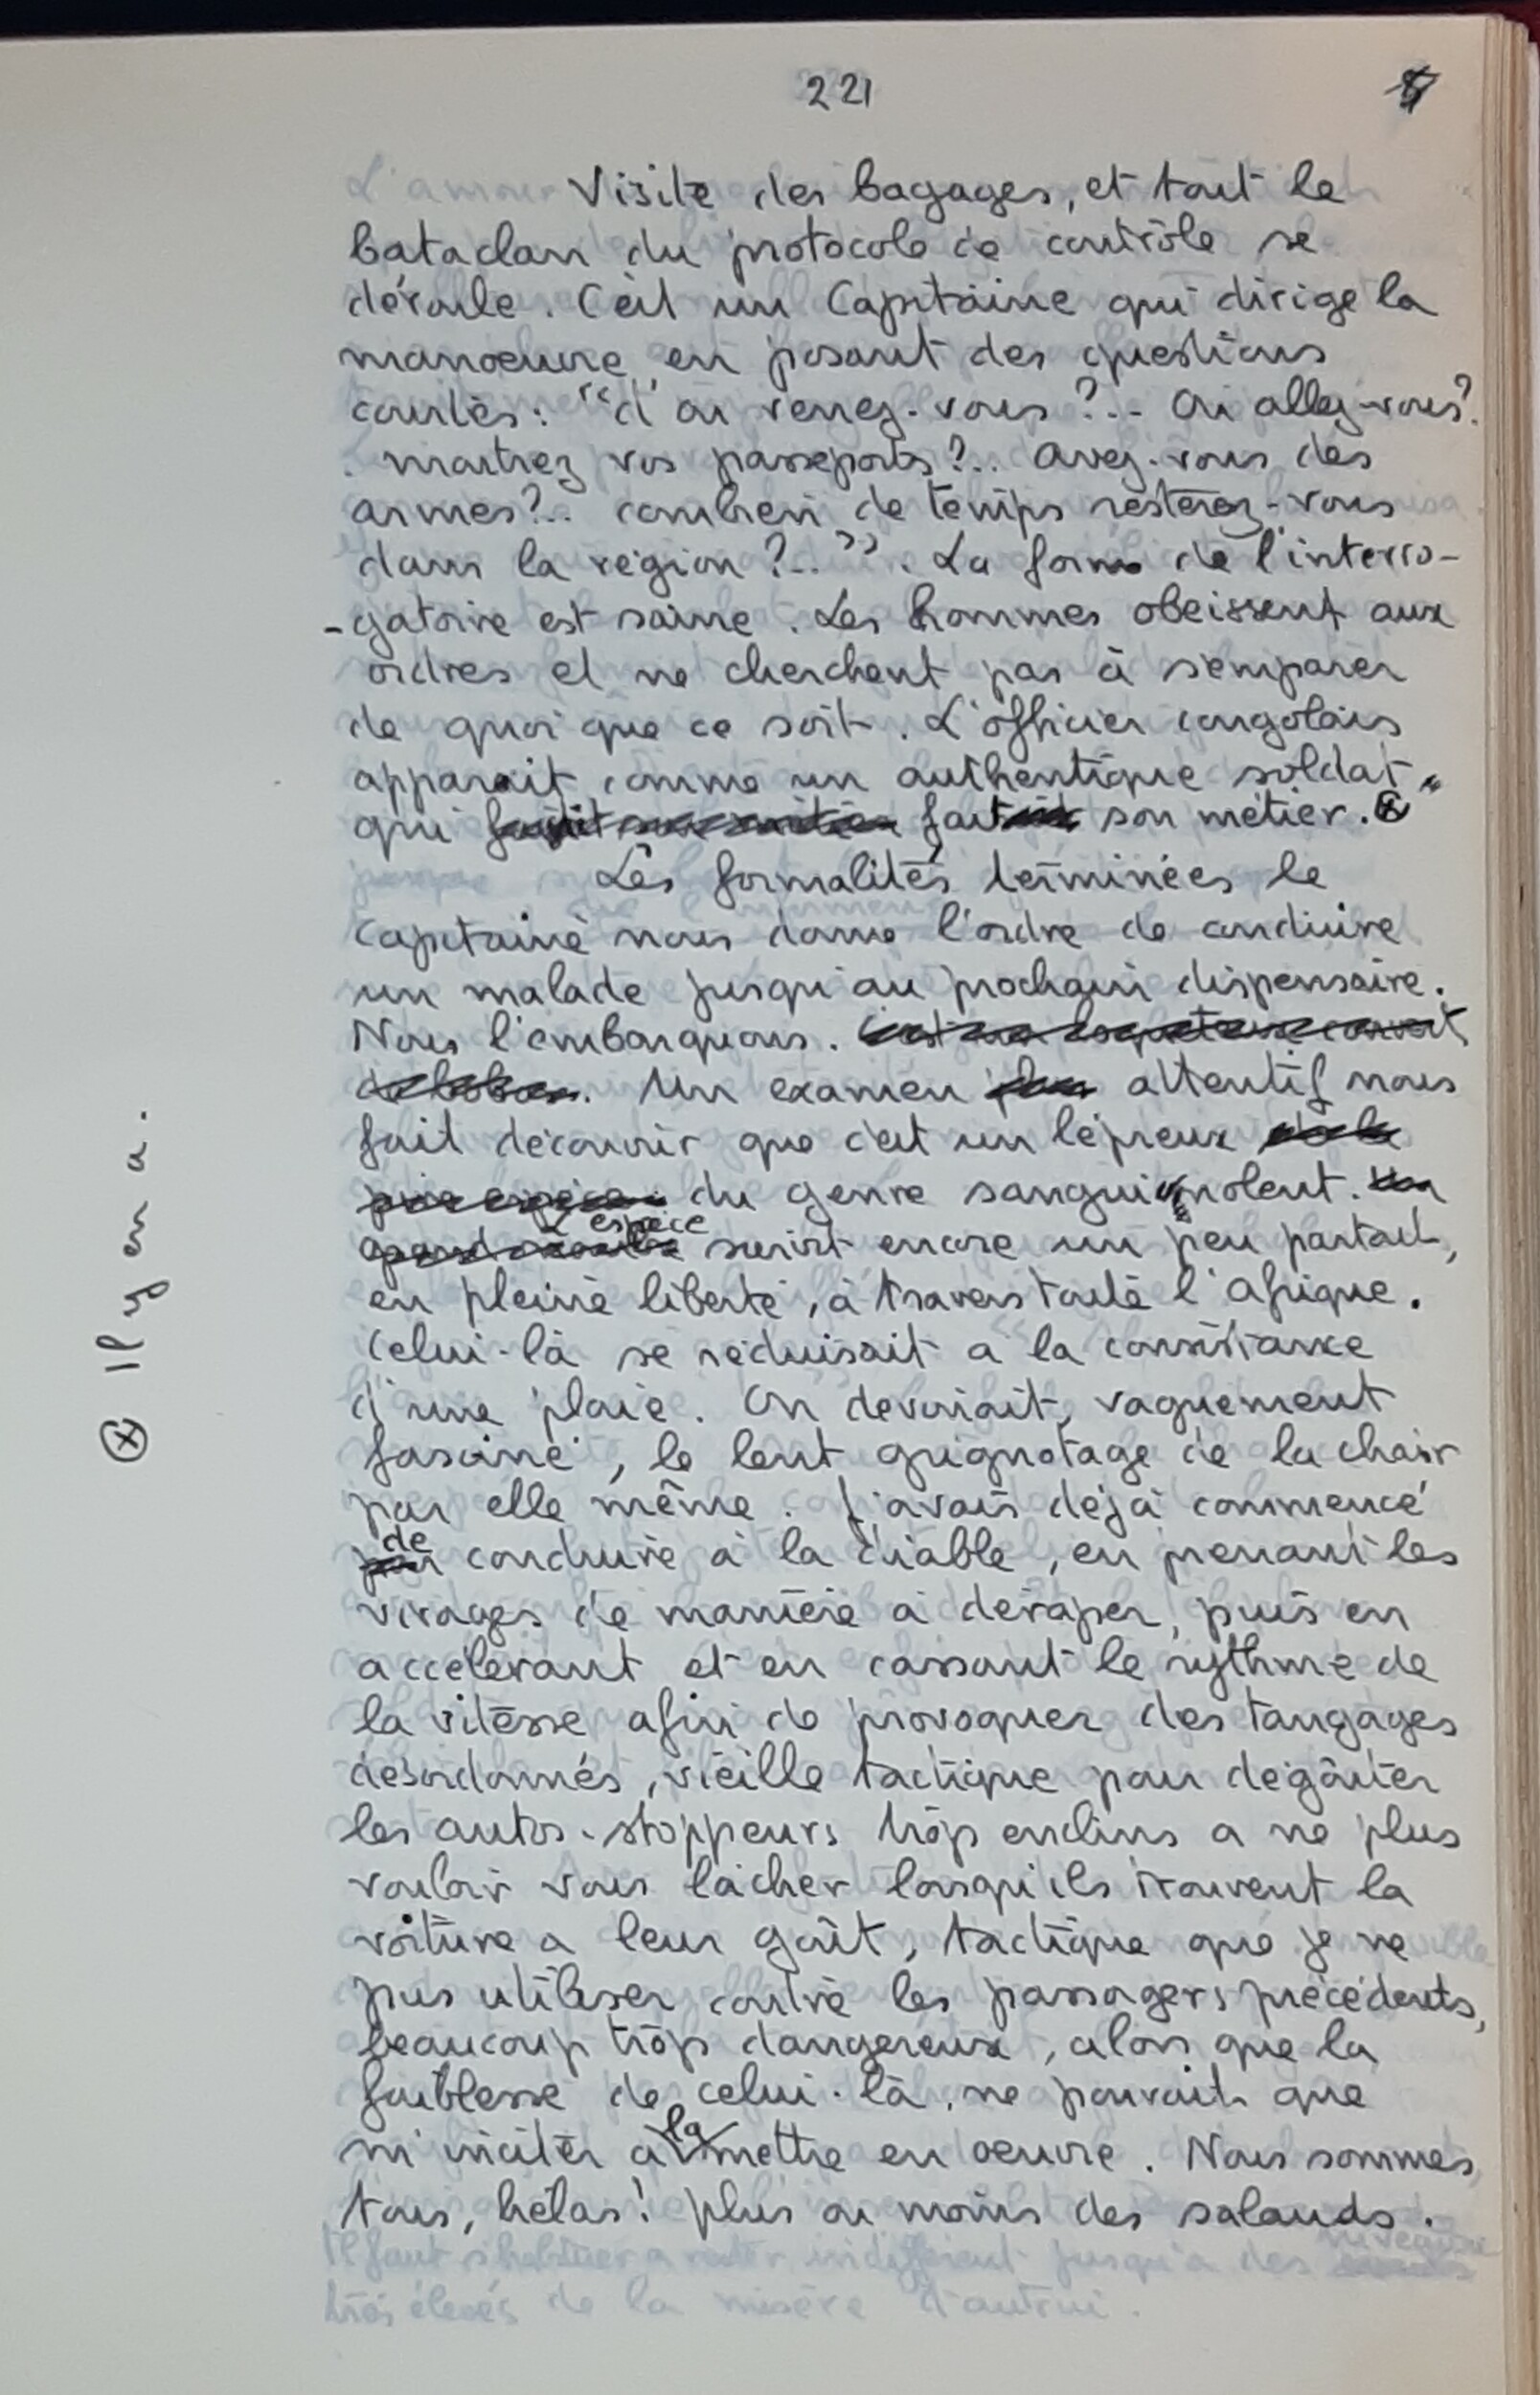 221
Visite des bagages, et tout le
bataclan du protocole de contrôle se
déroule. C'est un Capitaine qui dirige la
manoeuvre en posant des questions
courtes: "d'où venez-vous ?.. Où allez-vous?
. montrez vos passeports?.. avez-vous des
armes?.. combien de temps resterez-vous
dans la région ?.. ". La forme de l'interro-
-gatoire est saine. Les hommes obeissent aux
ordres et ne cherchent pas à s'emparer
de quoi que ce soit. L'officier congolais
apparait comme un authentique soldat
qui fait son métier. ⊗
Les formalités terminées le
Capitaine nous donne l'ordre de conduire
un malade jusqu'au prochain dispensaire.
Nous l'embarquons.
Un examen attentif nous
fait découvrir que c'est un lépreux
du genre sanguinolent.
L'espèce survit encore un peu partout,
en pleine liberté, à travers toute l'Afrique.
Celui-là se réduisait a la consistance
d'une plaie. On devinait, vaguement
fasciné, le lent grignotage de la chair
par elle même. J'avais déjà commencé
de conduire à la diable, en prenant les
virages de manière a déraper, puis en
accélérant et en cassant le rythme de
la vitesse afin de provoquer des tangages
désordonnés, vieille tactique pour dégoûter
les autos-stoppeurs trop enclins a ne plus
vouloir vous lâcher lorsqu'ils trouvent la
voiture a leur goût, tactique que je ne
pus utiliser contre les passagers précédents,
beaucoup trop dangereux, alors que la
faiblesse de celui-là, ne pouvait que
m'inciter a la mettre en oeuvre. Nous sommes
tous, hélas! plus ou moins des salauds.
Il faut s'habituer a rester indifférent jusqu'a des niveaux
très élevés de la misère d'autrui.
⊗ Il y en a.